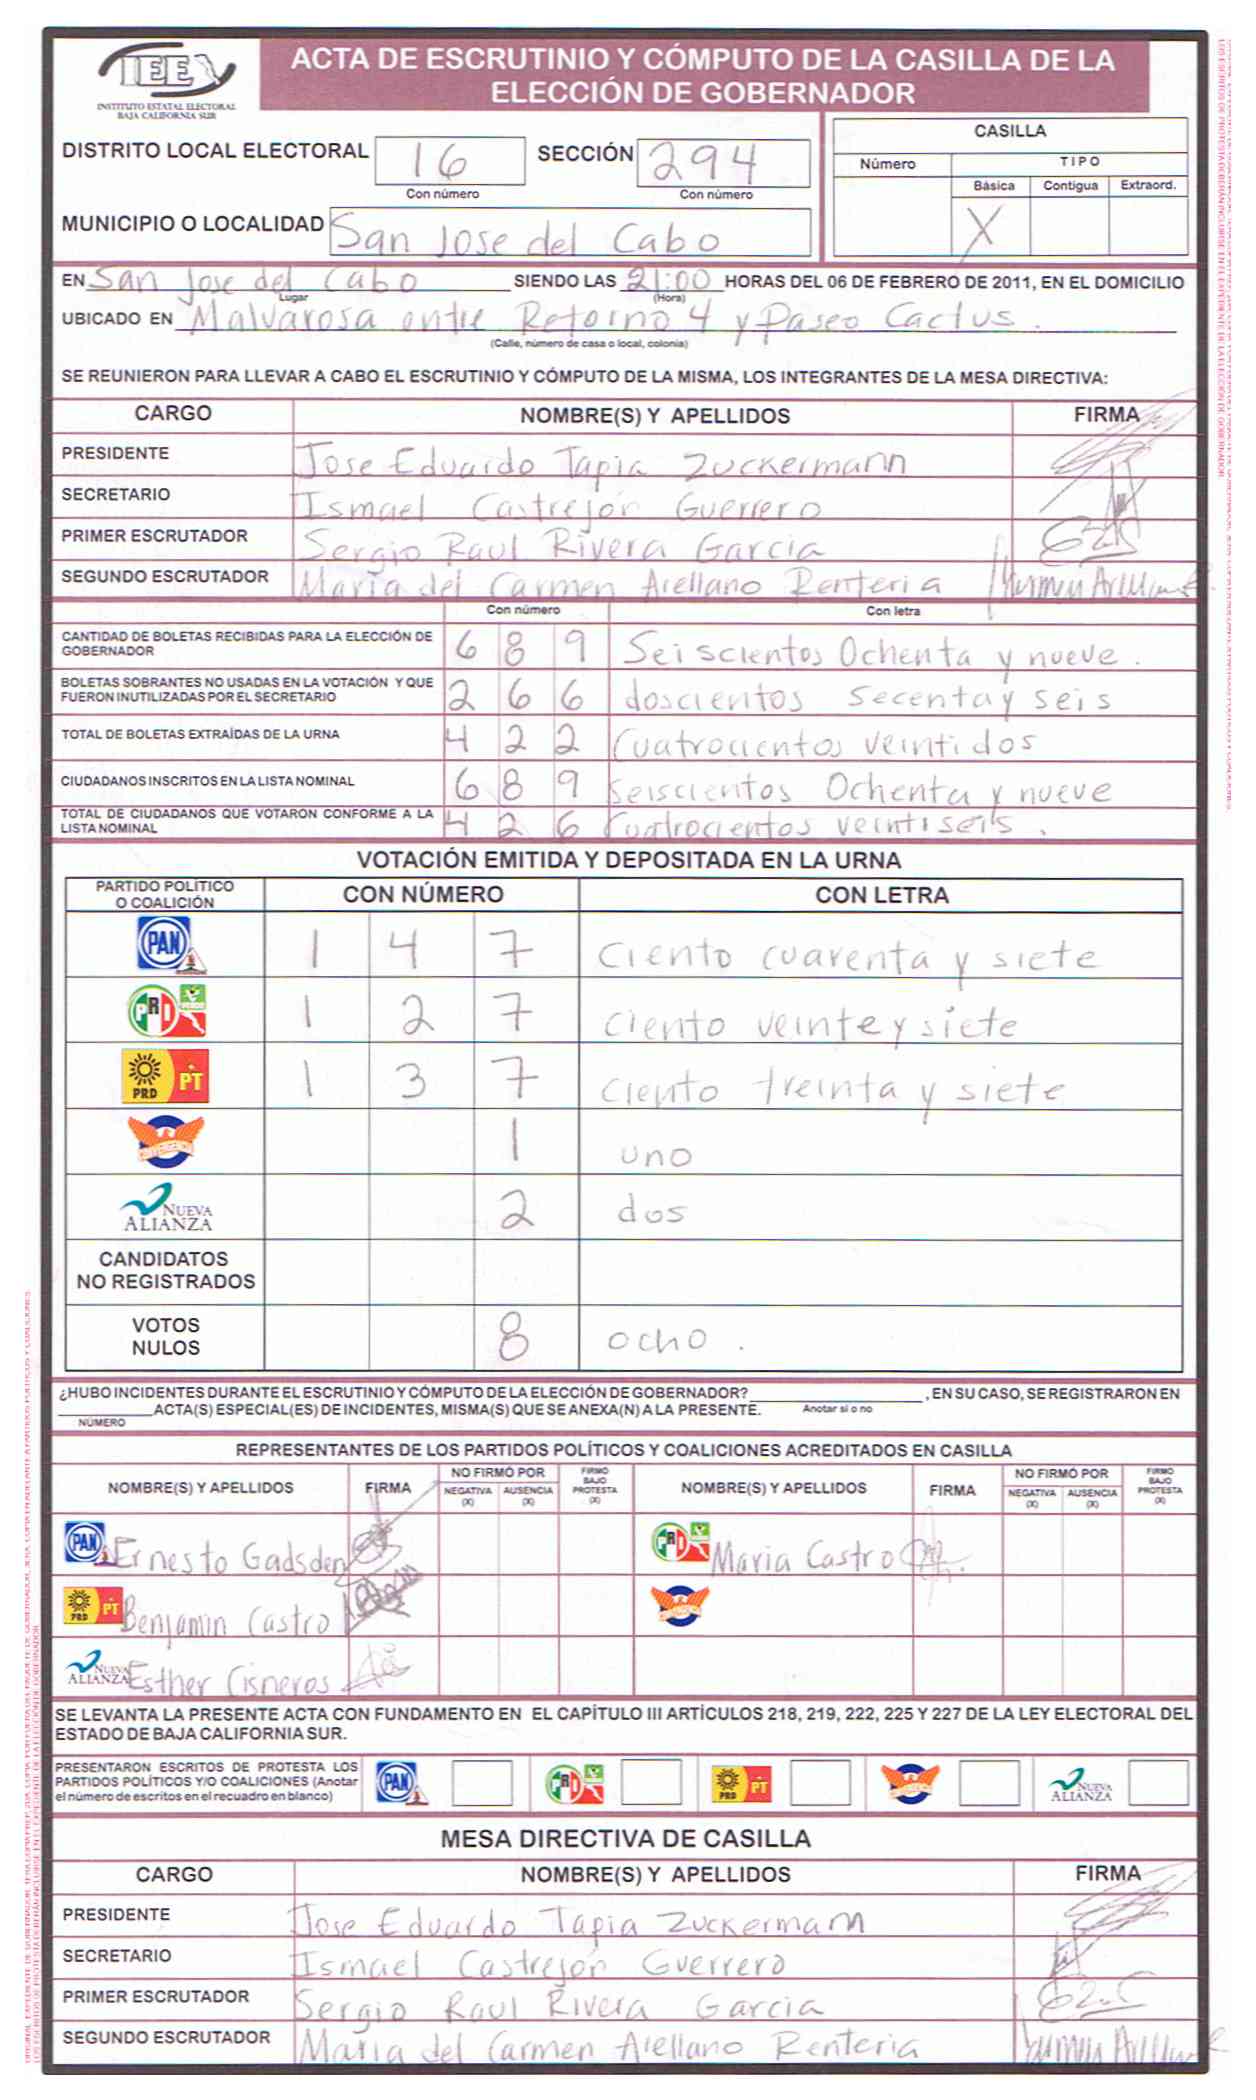 IEE
INSTITUTO ESTATAL ELECTORAL
BAJA CALIFORNIA SUR
ACTA DE ESCRUTINIO Y CÓMPUTO DE LA CASILLA DE LA
ELECCIÓN DE GOBERNADOR
DISTRITO LOCAL ELECTORAL 16 SECCIÓN 294
Con número Con número
MUNICIPIO O LOCALIDAD San Jose del Cabo
CASILLA
Número TIPO
Básica Contigua Extraord.
X
EN San Jose del Cabo SIENDO LAS 21:00 HORAS DEL 06 DE FEBRERO DE 2011, EN EL DOMICILIO
Lugar (Hora)
UBICADO EN Malvarosa entre Retorno 4 y Paseo Cactus.
(Calle, número de casa o local, colonia)
SE REUNIERON PARA LLEVAR A CABO EL ESCRUTINIO Y CÓMPUTO DE LA MISMA, LOS INTEGRANTES DE LA MESA DIRECTIVA:
CARGO NOMBRE(S) Y APELLIDOS FIRMA
PRESIDENTE Jose Eduardo Tapia Zuckermann
SECRETARIO Ismael Castrejón Guerrero
PRIMER ESCRUTADOR Sergio Raul Rivera Garcia
SEGUNDO ESCRUTADOR Maria del Carmen Arellano Renteria
Con número Con letra
CANTIDAD DE BOLETAS RECIBIDAS PARA LA ELECCIÓN DE
GOBERNADOR 6 8 9 Seiscientos Ochenta y nueve.
BOLETAS SOBRANTES NO USADAS EN LA VOTACIÓN Y QUE
FUERON INUTILIZADAS POR EL SECRETARIO 2 6 6 doscientos secenta y seis
TOTAL DE BOLETAS EXTRAÍDAS DE LA URNA 4 2 2 Cuatrocientos veintidos
CIUDADANOS INSCRITOS EN LA LISTA NOMINAL 6 8 9 seiscientos Ochenta y nueve
TOTAL DE CIUDADANOS QUE VOTARON CONFORME A LA
LISTA NOMINAL 4 2 6 Cuatrocientos veintiseis.
VOTACIÓN EMITIDA Y DEPOSITADA EN LA URNA
PARTIDO POLÍTICO
O COALICIÓN CON NÚMERO CON LETRA
PAN 1 4 7 ciento cuarenta y siete
PRI VERDE 1 2 7 ciento veinte y siete
PRD PT 1 3 7 ciento treinta y siete
CONVERGENCIA 1 uno
NUEVA ALIANZA 2 dos
CANDIDATOS
NO REGISTRADOS
VOTOS
NULOS 8 ocho.
¿HUBO INCIDENTES DURANTE EL ESCRUTINIO Y CÓMPUTO DE LA ELECCIÓN DE GOBERNADOR? , EN SU CASO, SE REGISTRARON EN
ACTA(S) ESPECIAL(ES) DE INCIDENTES, MISMA(S) QUE SE ANEXA(N) A LA PRESENTE. Anotar si o no
NÚMERO
REPRESENTANTES DE LOS PARTIDOS POLÍTICOS Y COALICIONES ACREDITADOS EN CASILLA
NOMBRE(S) Y APELLIDOS FIRMA NO FIRMÓ POR NEGATIVA (X) AUSENCIA (X) FIRMÓ BAJO PROTESTA (X) NOMBRE(S) Y APELLIDOS FIRMA NO FIRMÓ POR NEGATIVA (X) AUSENCIA (X) FIRMÓ BAJO PROTESTA (X)
PAN Ernesto Gadsden PRI Maria Castro
PRD PT Benjamin Castro CONVERGENCIA
NUEVA ALIANZA Esther Cisneros
SE LEVANTA LA PRESENTE ACTA CON FUNDAMENTO EN EL CAPÍTULO III ARTÍCULOS 218, 219, 222, 225 Y 227 DE LA LEY ELECTORAL DEL
ESTADO DE BAJA CALIFORNIA SUR.
PRESENTARON ESCRITOS DE PROTESTA LOS
PARTIDOS POLÍTICOS Y/O COALICIONES (Anotar
el número de escritos en el recuadro en blanco)
PAN PRI PRD PT CONVERGENCIA NUEVA ALIANZA
MESA DIRECTIVA DE CASILLA
CARGO NOMBRE(S) Y APELLIDOS FIRMA
PRESIDENTE Jose Eduardo Tapia Zuckermann
SECRETARIO Ismael Castrejón Guerrero
PRIMER ESCRUTADOR Sergio Raul Rivera Garcia
SEGUNDO ESCRUTADOR Maria del Carmen Arellano Renteria